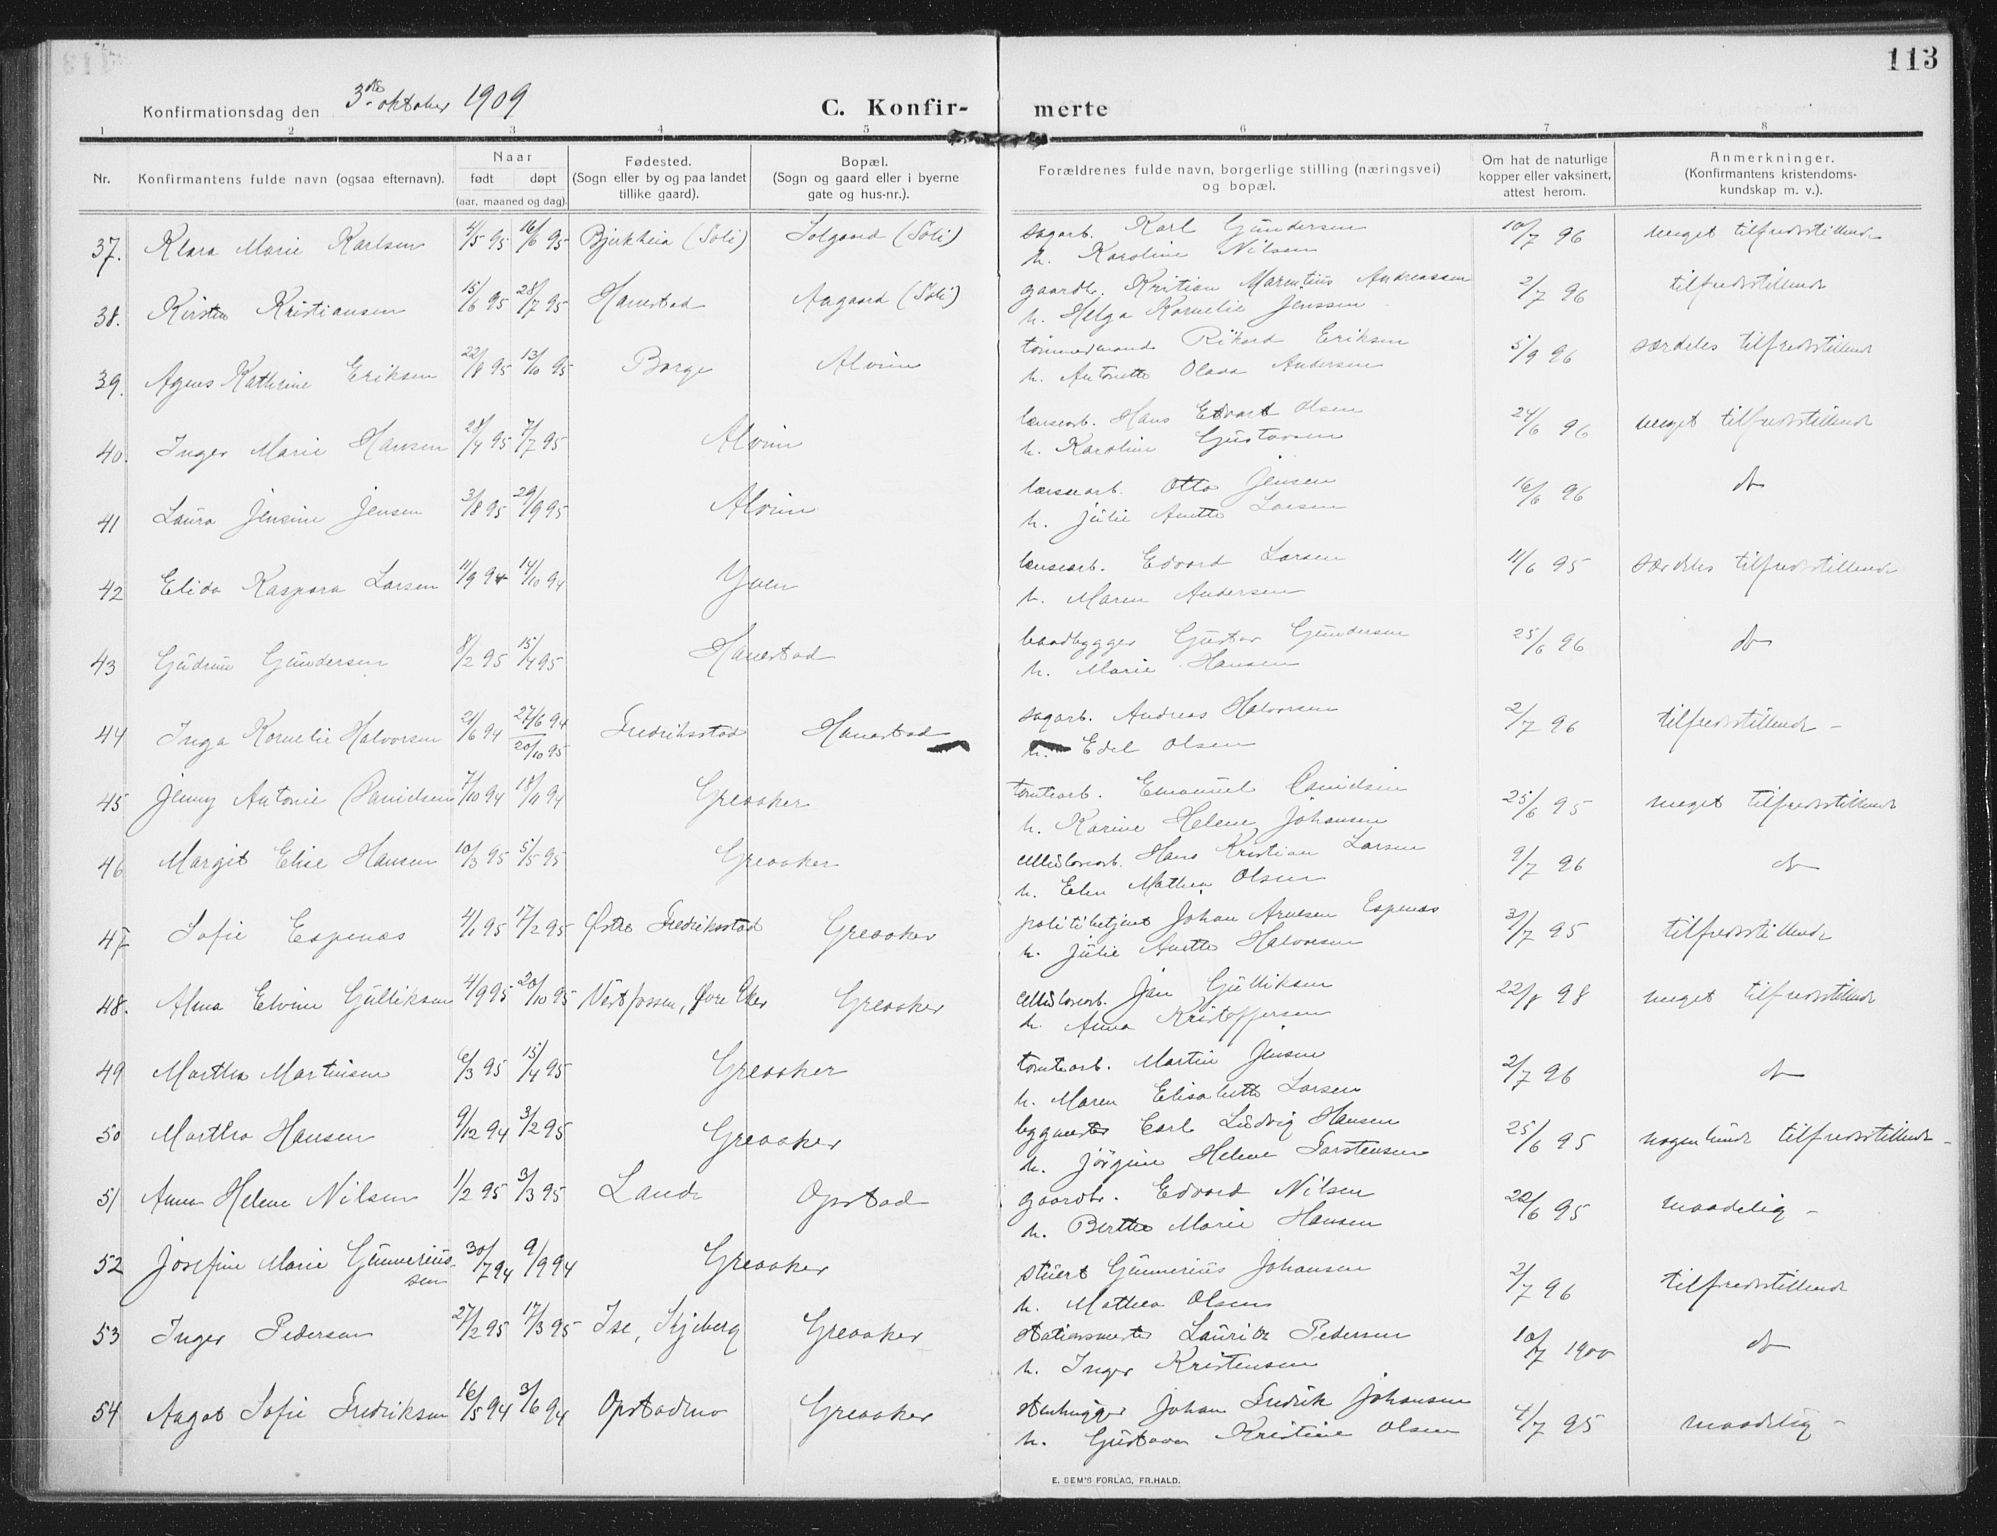 113
Konfirmationsdag den 3die oktober 1909
C. Konfir- merte
1 2 3 4 5 6 7 8
Nr. Konfirmantens fulde navn (ogsaa efternavn). Naar født døpt (aar, maaned og dag). Fødested. (Sogn eller by og paa landet tillike gaard). Bopæl. (Sogn og gaard eller i byerne gate og hus-nr.). Forældrenes fulde navn, borgerlige stilling (næringsvei) og bopæl. Om hat de naturlige kopper eller vaksinert, attest herom. Anmerkninger. (Konfirmantens kristendoms- kundskap m. v.).
37. Klara Marie Karlsen 4/5 95 16/6 95 Bjerkheia (Soli) Solgaard (Soli) sagarb. Karl Gundersen 10/7 96 meget tilfredsstillende
h. Karoline Nilsen
38. Kirsten Kristiansen 15/6 95 28/7 95 Hanestad Aagaard (Soli) gaardbr. Kristian Marentius Andreassen 2/7 96 tilfredsstillende
h. Helga Kornelie Jenssen
39. Agnes Kathrine Eriksen 22/8 95 13/10 95 Borge Alvim tømmermand Rikard Eriksen 5/9 96 særdeles tilfredsstillende
h. Antonette Olava Andersen
40. Inger Marie Hansen 28/4 95 7/7 95 Alvim lænsearb. Hans Edvart Olsen 24/6 96 meget tilfredsstillende
h. Karoline Gustavsen
41 Laura Jensine Jensen 3/8 95 29/9 95 Alvim lænsearb. Otto Jensen 16/6 96 do
h. Julie Anette Larsen
42 Elida Kaspara Larsen 11/9 94 14/10 94 Yven lænsearb. Edvard Larsen 11/6 95 særdeles tilfredsstillende
h. Maren Andersen
43 Gudrun Gundersen 8/2 95 15/4 95 Hanestad baadbygger Gustav Gundersen 25/6 96 do
h. Marie Hansen
44 Inga Kornelie Halvorsen 21/6 94 27/6 94 20/10 95 Fredriksstad Hanestad sagarb. Andreas Halvorsen 2/7 96 tilfredsstillende -
h. Edel Olsen
45 Jenny Antonie Danielsen 7/10 94 18/11 94 Greaaker tomtearb. Emanuel Danielsen 25/6 95 meget tilfredsstillende
h. Karine Helene Johansen
46 Margit Elise Hansen 10/3 95 5/5 95 Greaaker cellulosearb. Hans Kristian Larsen 9/7 96 do
h. Elen Mathea Olsen
47 Sofie Espenæs 4/1 95 17/2 95 Østre Fredriksstad Greaaker politibetjent Johan Arnesen Espenæs 3/7 95 tilfredsstillende
h. Julie Anette Halvorsen
48. Alma Elvine Gulliksen 4/9 95 20/10 95 Vestfossen, Øvre Eker Greaaker cellulosearb. Jan Gulliksen 22/8 98 meget tilfredsstillende
h. Anna Kristoffersen
49 Martha Martinsen 6/3 95 15/4 95 Greaaker tomtearb. Martin Jensen 2/7 96 do
h. Maren Elisabeth Larsen
50 Martha Hansen 9/12 94 3/2 95 Greaaker bygmester Carl Ludvig Hansen 25/6 95 nogenlunde tilfredsstillende -
h. Jørgine Helene Torstensen
51 Anna Helene Nilsen 1/2 95 3/3 95 Lande Opstad gaardbr. Edvard Nilsen 20/6 95 maadelig -
h. Berthe Marie Hansen
52 Josefine Marie Gunnerius- sen 30/7 94 9/9 94 Greaaker stuert Gunnerius Johansen 2/7 96 tilfredsstillende
h. Mathea Olsen
53 Inger Pedersen 27/2 95 17/3 95 Ise, Skjeberg Greaaker stationsmester Lauritz Pedersen 10/7 1900 do
h. Inger Kristensen
54 Aagot Sofie Fredriksen 16/5 94 3/6 94 Opstadmo Greaaker stenhugger Johan Fredrik Johansen 4/7 95 maadelig -
h. Gustava Kristine Olsen
E. SEM'S FORLAG, FR.HALD.